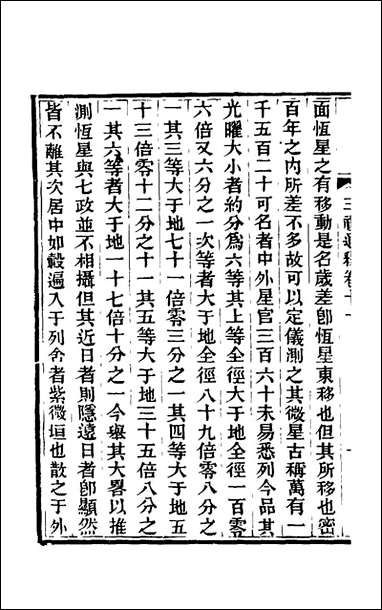 三禮通釋卷十一
面恆星之有移動是名歲差卽恆星東移也但其所移也密
百年之內所差不多故可以定儀測之其微星古稱萬有一
千五百二十可名者中外星官三百六十未易悉列今品其
光曜大小者約分爲六等其上等全徑大于地全徑一百零
六倍又六分之一次等者大于地全徑八十九倍零八分之
一其三等大于地七十一倍零三分之一其四等大于地五
十三倍零十二分之十一其五等大于地三十五倍八分之
一其六等者大于地一十七倍十分之一今舉其大畧以推
測恆星與七政並不相攝但其近日者則隱遠日者卽顯然
皆不離其次居中如轂遍入于列舍者紫微垣也散之于外